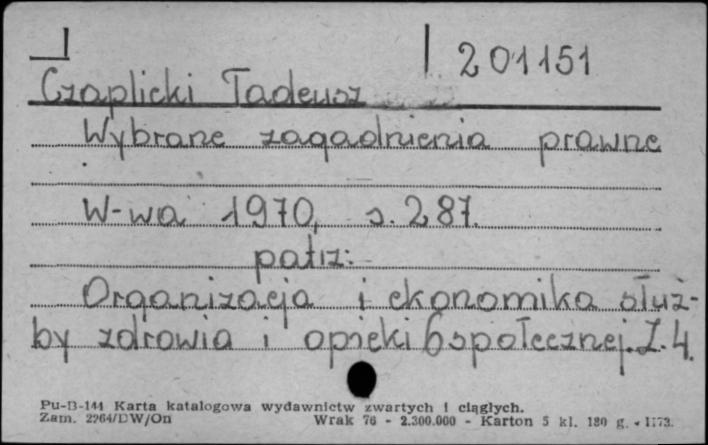 201151
Czaplicki Tadeusz
Wybrane zagadnienia prawne
W-wa 1970, s. 287.
patrz:
Organizacja i ekonomika służ-
by zdrowia i opieki społecznej. Z. 4.
Pu-B-144 Karta katalogowa wydawnictw zwartych i ciągłych.
Zam. 2964/DW/On Wrak 76 - 2.300.000 - Karton 5 kl. 180 g.